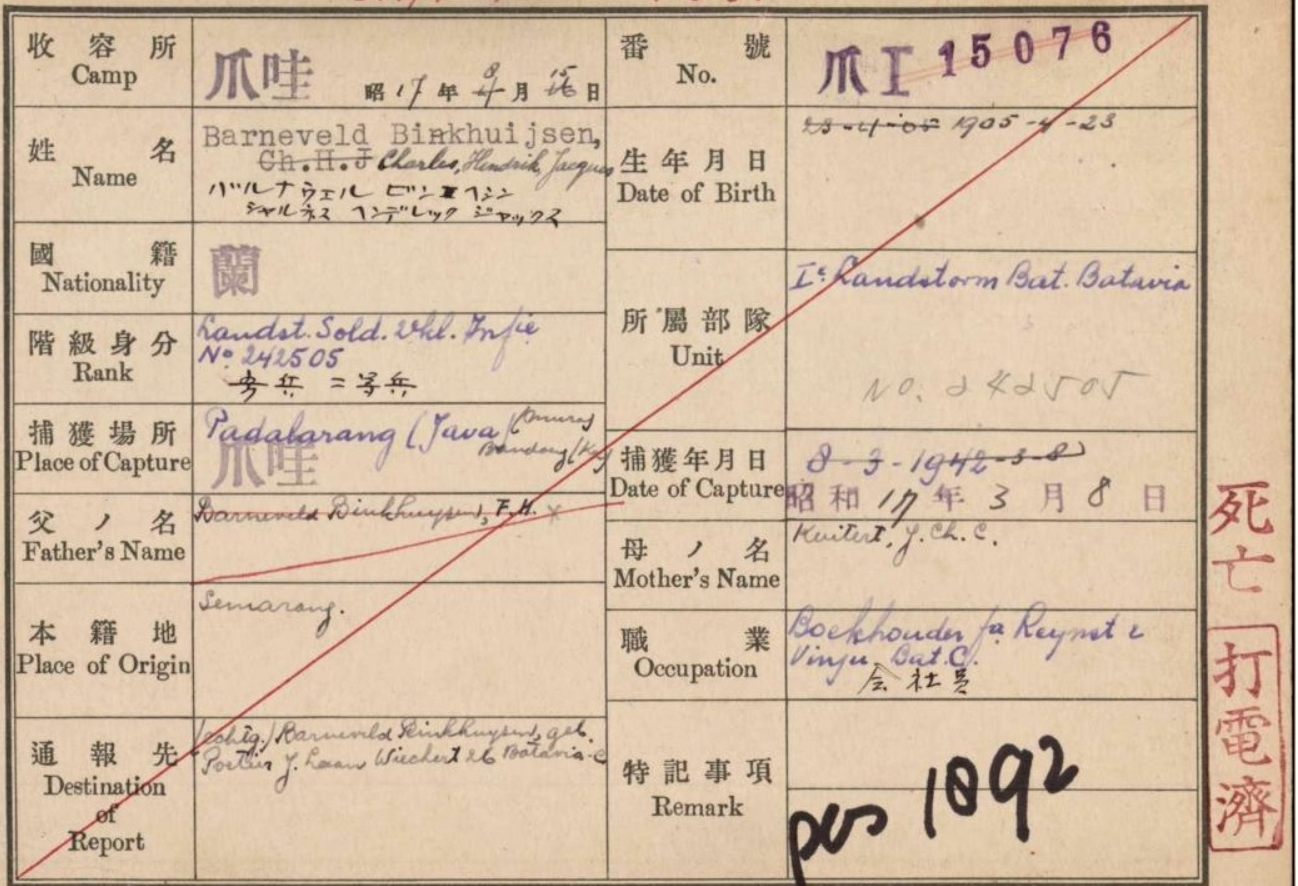 收容所
Camp
爪哇
昭17年 8月 15日
番號
No.
爪I 15076
姓名
Name
Barneveld Binkhuijsen,
Ch.H.J Charles, Hendrik, Jacques
バルナウェル ビン
シャルネス ヘンデレック ジャックス
生年月日
Date of Birth
23-4-05 1905-4-23
國籍
Nationality
蘭
階級身分
Rank
Landst. Sold. 2kl. Infie
No 242505
二等兵
所屬部隊
Unit
Ie Landstorm Bat. Batavia
No. 242505
捕獲場所
Place of Capture
Padalarang (Java)
Bandong
爪哇
捕獲年月日
Date of Capture
8-3-1942-3-8
昭和17年3月8日
父ノ名
Father's Name
Barneveld Binkhuysen, F.H. x
母ノ名
Mother's Name
Kuitert, J. Ch. C.
本籍地
Place of Origin
Semarang.
職業
Occupation
Boekhouder fa Reynst &
Vinju Bat. C.
会社員
通報先
Destination
of
Report
(echtg.) Barneveld Binkhuysen, geb.
J. Laan Wiechert 26 Batavia-C
特記事項
Remark
pcs 1892
死亡
打電濟